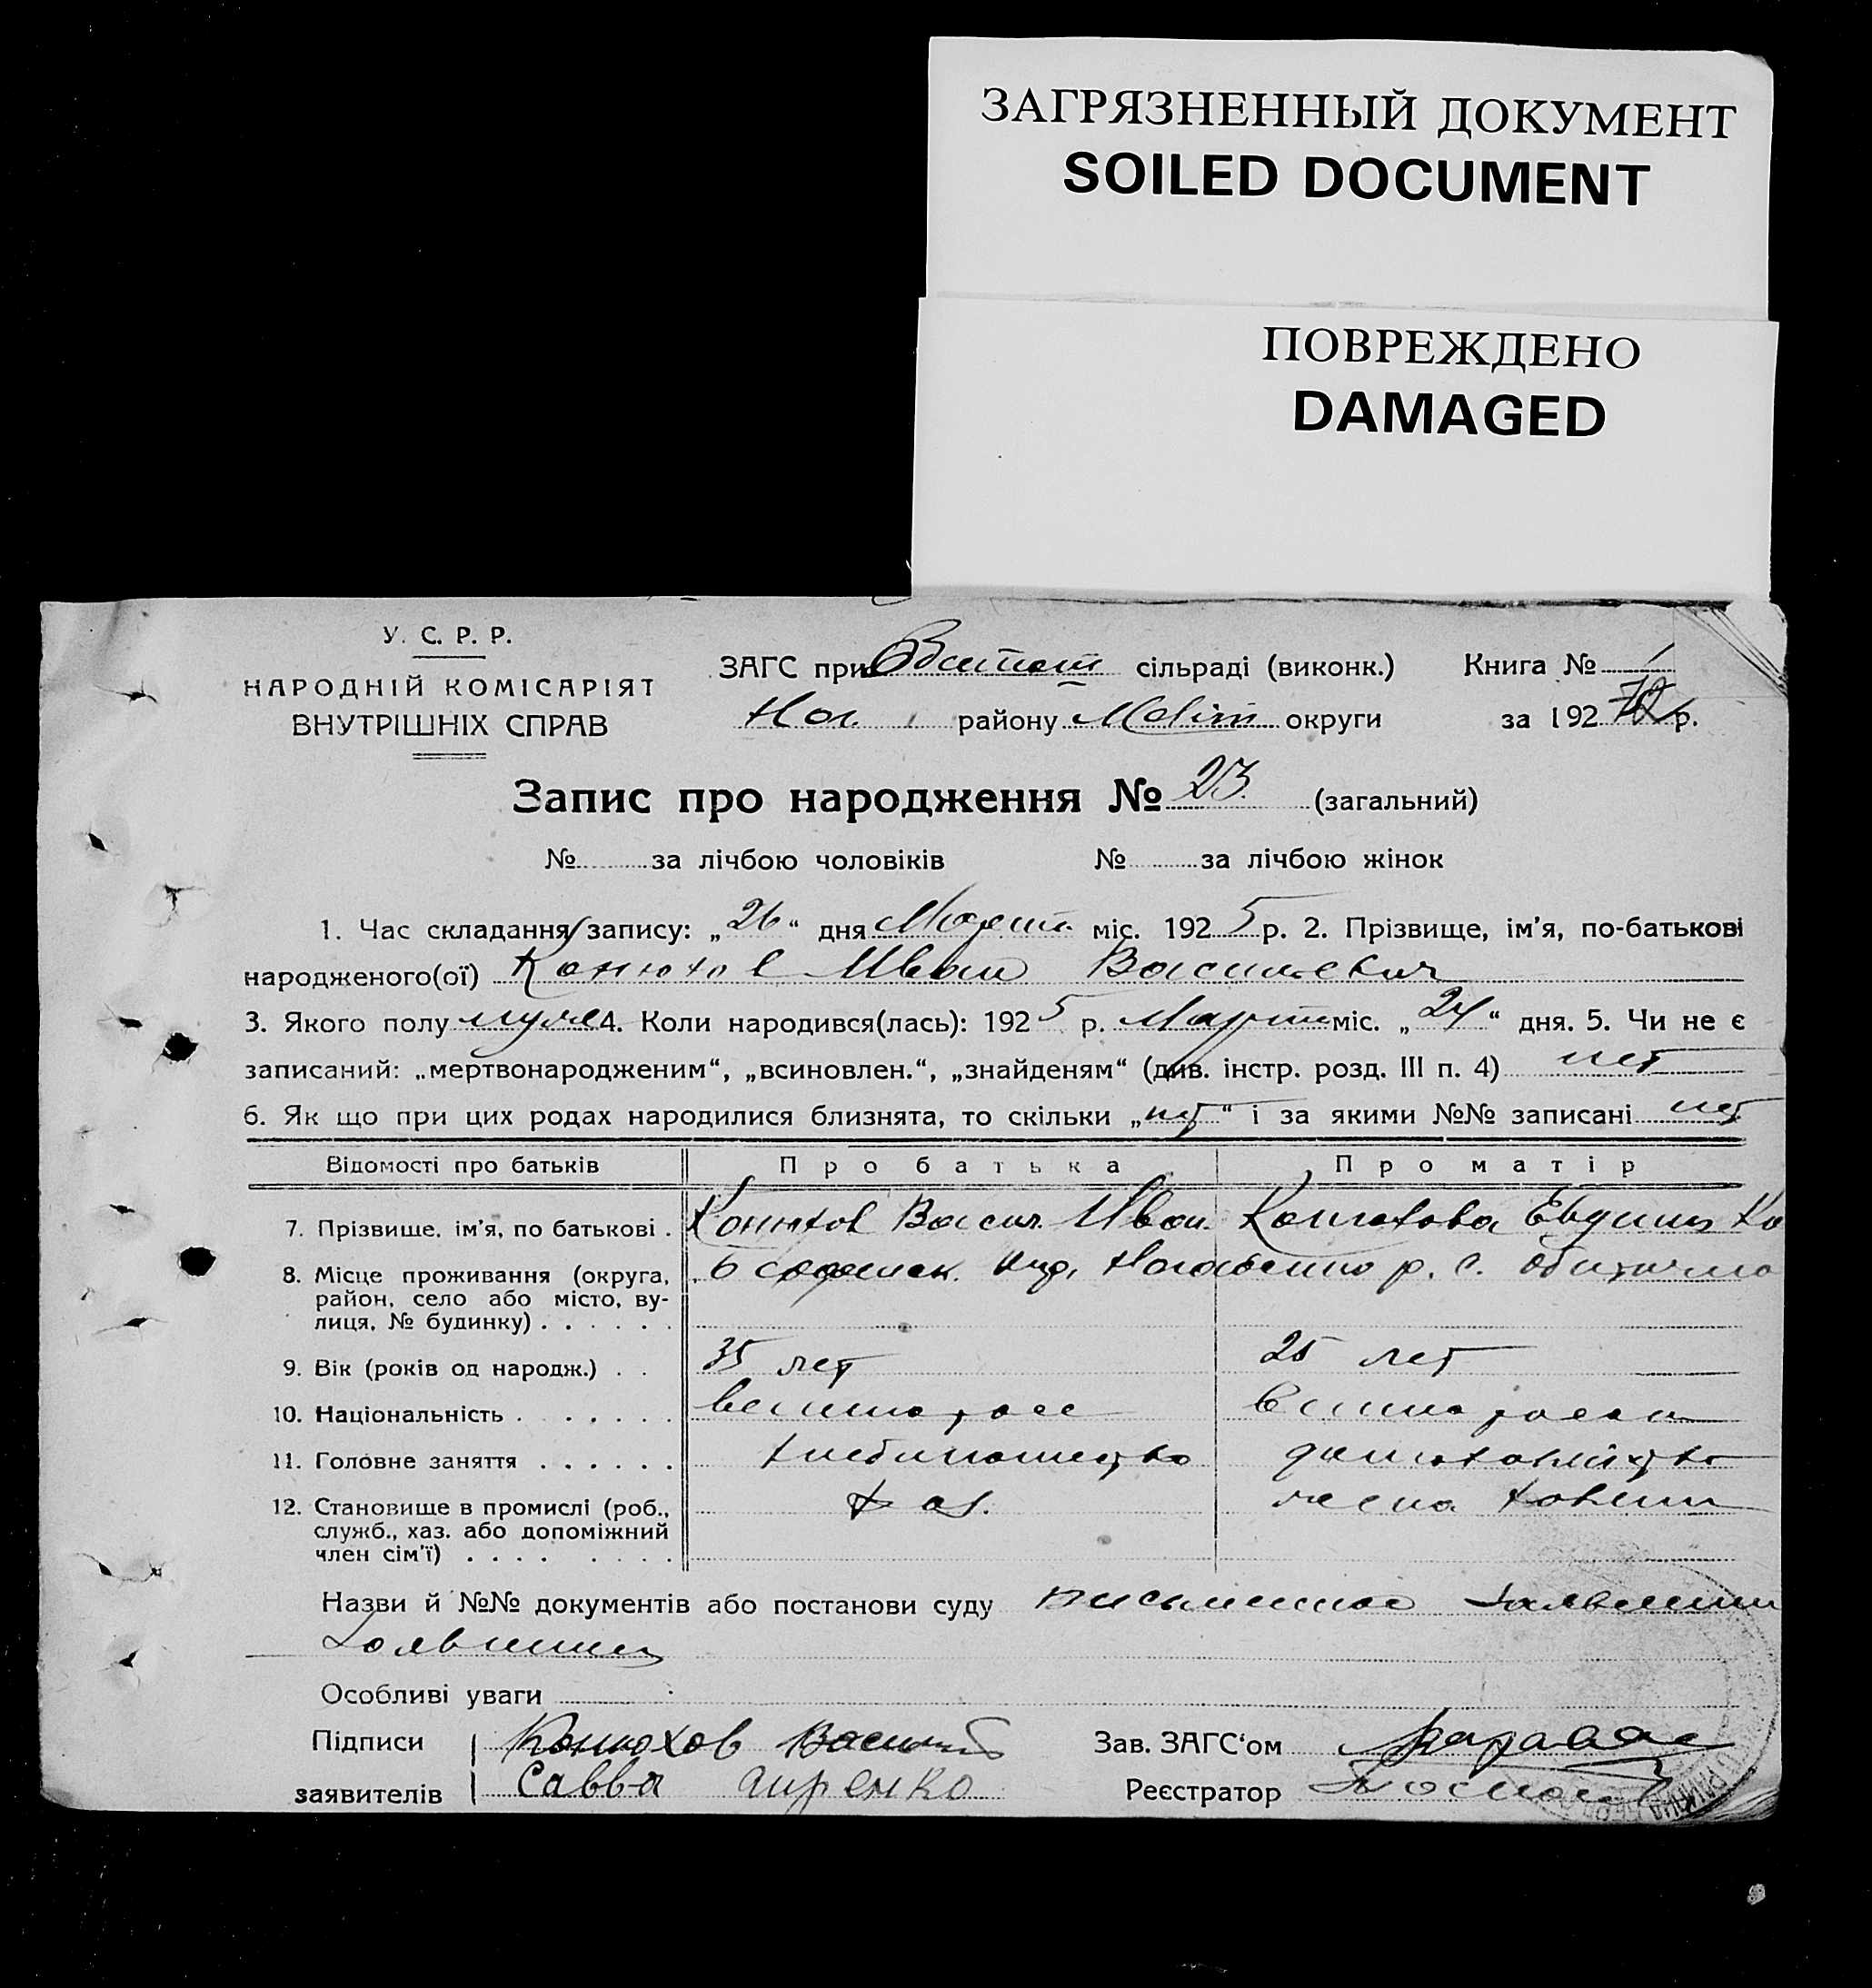 ЗАГРЯЗНЕННЫЙ ДОКУМЕНТ
SOILED DOCUMENT
ПОВРЕЖДЕНО
DAMAGED
У. С. Р. Р.
НАРОДНІЙ КОМІСАРІЯТ
ВНУТРІШНІХ СПРАВ
ЗАГС при сільраді (виконк.) Книга № 1
Ног. району Меліт округи за 192 р.
Запис про народження № 23 (загальний)
№ за лічбою чоловіків № за лічбою жінок
1. Час складання запису: „26“ дня Марта міс. 1925 р. 2. Прізвище, ім'я, по-батькові
народженого(ої) Конюхов Иван Васильевич
3. Якого полу муж 4. Коли народився(лась): 1925 р. Марта міс. „24“ дня. 5. Чи не є
записаний: „мертвонародженим“, „всиновлен.“, „знайденям“ (див. інстр. розд. III п. 4) нет
6. Як що при цих родах народилися близнята, то скільки „нет“ і за якими №№ записані нет
Відомості про батьків Про батька Про матір
7. Прізвище, ім'я, по батькові . Конюхов Васил. Иван. Конюхова Евдокия
8. Місце проживання (округа,
район, село або місто, ву-
лиця, № будинку) . . . . . . р. с.
9. Вік (років од народж.) . . 35 лет 25 лет
10. Національність . . . . . . . великоросс великоросска
11. Головне заняття . . . . . . хлебопашество домоховяйство
12. Становище в промислі (роб.,
служб., хаз. або допоміжний
член сім'ї) . . . . . . . . хоз.
Назви й №№ документів або постанови суду письменное заявление
Особливі уваги
Підписи Конюхов Василий Зав. ЗАГС'ом
заявителів Савва Реєстратор